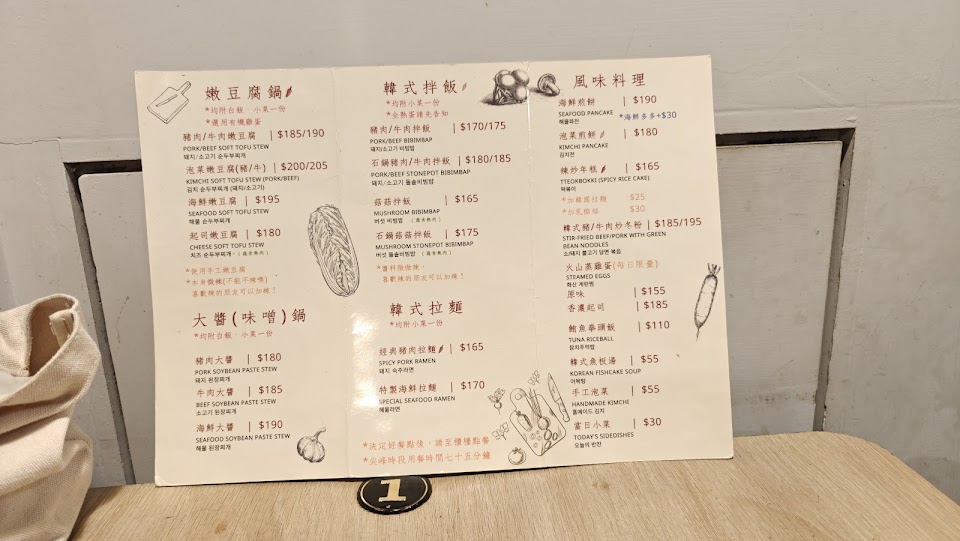 嫩豆腐鍋
*均附白飯、小菜一份
*選用有機雞蛋
豬肉/牛肉嫩豆腐 | $185/190
PORK/BEEF SOFT TOFU STEW
돼지/소고기 순두부찌개
泡菜嫩豆腐(豬/牛) | $200/205
KIMCHI SOFT TOFU STEW (PORK/BEEF)
김치 순두부찌개 (돼지/소고기)
海鮮嫩豆腐 | $195
SEAFOOD SOFT TOFU STEW
해물 순두부찌개
起司嫩豆腐 | $180
CHEESE SOFT TOFU STEW
치즈 순두부찌개
*使用手工嫩豆腐
*本身微辣(不能不辣喔)
喜歡辣的朋友可以加辣!
大醬(味噌)鍋
*均附白飯、小菜一份
豬肉大醬 | $180
PORK SOYBEAN PASTE STEW
돼지 된장찌개
牛肉大醬 | $185
BEEF SOYBEAN PASTE STEW
소고기 된장찌개
海鮮大醬 | $190
SEAFOOD SOYBEAN PASTE STEW
해물 된장찌개
韓式拌飯
*均附小菜一份
*全熟蛋請先告知
豬肉/牛肉拌飯 | $170/175
PORK/BEEF BIBIMBAP
돼지/소고기 비빔밥
石鍋豬肉/牛肉拌飯 | $180/185
PORK/BEEF STONEPOT BIBIMBAP
돼지/소고기 돌솥비빔밥
菇菇拌飯 | $165
MUSHROOM BIBIMBAP
버섯 비빔밥
石鍋菇菇拌飯 | $175
MUSHROOM STONEPOT BIBIMBAP
버섯 돌솥비빔밥
*醬料微微辣,
喜歡辣的朋友可以加辣!
韓式拉麵
*均附小菜一份
經典豬肉拉麵 | $165
SPICY PORK RAMEN
돼지 숙주라면
特製海鮮拉麵 | $170
SPECIAL SEAFOOD RAMEN
해물라면
*決定好餐點後,請至櫃檯點餐
*尖峰時段用餐時間七十五分鐘
風味料理
海鮮煎餅 | $190
SEAFOOD PANCAKE
해물파전
*海鮮多多+$30
泡菜煎餅 | $180
KIMCHI PANCAKE
김치전
辣炒年糕 | $165
TTEOKBOKKI (SPICY RICE CAKE)
떡볶이
*加韓國拉麵 $25
*加乳酪絲 $30
韓式豬/牛肉炒冬粉 | $185/195
STIR-FRIED BEEF/PORK WITH GREEN
BEAN NOODLES
소/돼지 불고기 당면 볶음
火山蒸雞蛋(每日限量)
STEAMED EGGS
화산 계란찜
原味 | $155
香濃起司 | $185
鮪魚拳頭飯 | $110
TUNA RICEBALL
참치주먹밥
韓式魚板湯 | $55
KOREAN FISHCAKE SOUP
어묵탕
手工泡菜 | $55
HANDMADE KIMCHI
홈메이드 김치
當日小菜 | $30
TODAY'S SIDEDISHES
오늘의 반찬
1